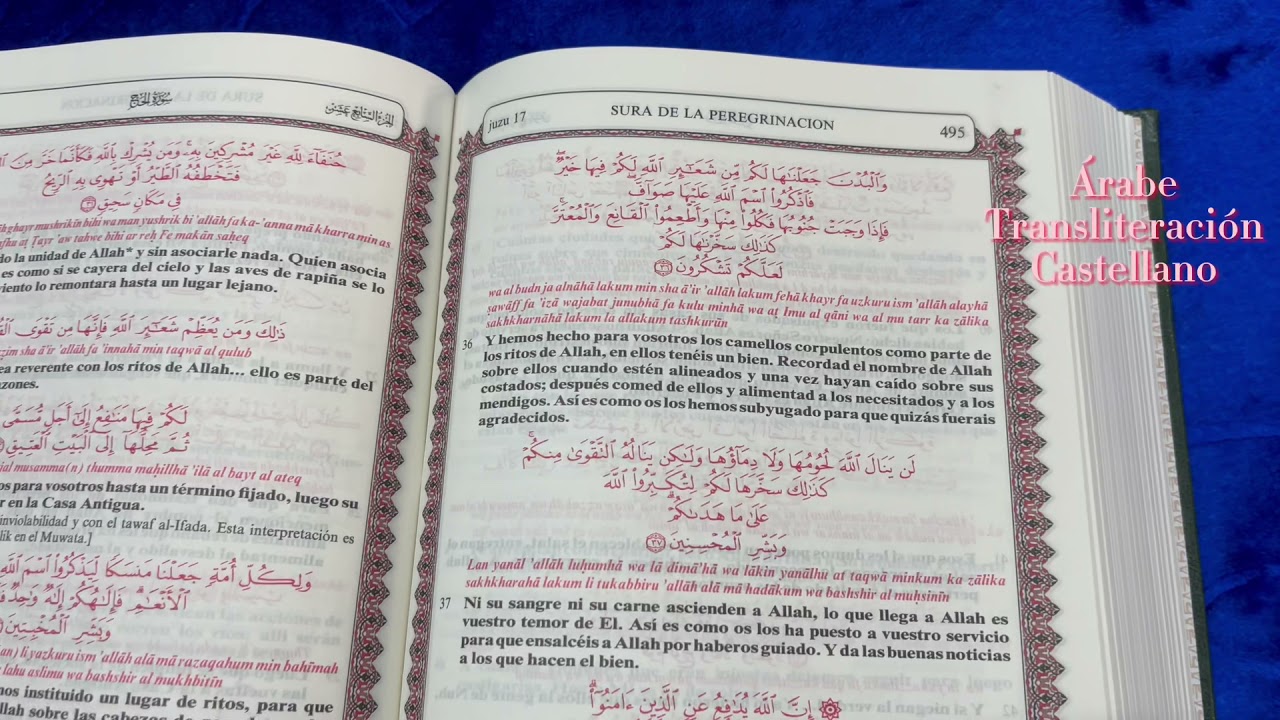 سورة الحج
الجزء السابع عشر
حُنَفَآءَ لِلَّهِ غَيْرَ مُشْرِكِينَ بِهِۦ ۚ وَمَن يُشْرِكْ بِٱللَّهِ فَكَأَنَّمَا خَرَّ مِنَ
فَتَخْطَفُهُ ٱلطَّيْرُ أَوْ تَهْوِى بِهِ ٱلرِّيحُ
فِى مَكَانٍ سَحِيقٍ ٣١
ghayr mushrikīn bihi wa man yushrik bi 'allāh fa ka-'anna mā kharra min as
aṭ Ṭayr 'aw tahwe bihi ar reḥ Fe makān saḥeq
do la unidad de Allah* y sin asociarle nada. Quien asocia
es como si se cayera del cielo y las aves de rapiña se lo
viento lo remontara hasta un lugar lejano.
ذَٰلِكَ وَمَن يُعَظِّمْ شَعَـٰٓئِرَ ٱللَّهِ فَإِنَّهَا مِن تَقْوَى
zzim sha ā'ir 'allāh fa 'innahā min taqwā al qulub
ea reverente con los ritos de Allah... ello es parte del
azones.
لَكُمْ فِيهَا مَنَـٰفِعُ إِلَىٰٓ أَجَلٍ مُّسَمًّى
ثُمَّ مَحِلُّهَآ إِلَى ٱلْبَيْتِ ٱلْعَتِيقِ
jal musamma(n) thumma maḥillhā 'ilā al bayt al ateq
os para vosotros hasta un término fijado, luego su
r en la Casa Antigua.
inviolabilidad y con el tawaf al-Ifada. Esta interpretación es
lik en el Muwata.]
وَلِكُلِّ أُمَّةٍ جَعَلْنَا مَنسَكًا لِّيَذْكُرُوا۟ ٱسْمَ ٱللَّهِ
ٱلْأَنْعَـٰمِ ۗ فَإِلَـٰهُكُمْ إِلَـٰهٌ وَٰحِدٌ
وَبَشِّرِ ٱلْمُخْبِتِينَ
an) li yazkuru ism 'allāh alā mā razaqahum min bahīmah
lahu aslimu wa bashshir al mukhbitīn
mos instituido un lugar de ritos, para que
Allah sobre las cabezas de
juzu 17
SURA DE LA PEREGRINACION
495
وَٱلْبُدْنَ جَعَلْنَـٰهَا لَكُم مِّن شَعَـٰٓئِرِ ٱللَّهِ لَكُمْ فِيهَا خَيْرٌ ۖ
فَٱذْكُرُوا۟ ٱسْمَ ٱللَّهِ عَلَيْهَا صَوَآفَّ ۖ
فَإِذَا وَجَبَتْ جُنُوبُهَا فَكُلُوا۟ مِنْهَا وَأَطْعِمُوا۟ ٱلْقَانِعَ وَٱلْمُعْتَرَّ ۚ
كَذَٰلِكَ سَخَّرْنَـٰهَا لَكُمْ
لَعَلَّكُمْ تَشْكُرُونَ ٣٦
wa al budn ja alnāhā lakum min sha ā'ir 'allāh lakum fehā khayr fa uzkuru ism 'allāh alayhā
ṣawāff fa 'izā wajabat junubhā fa kulu minhā wa aṭ Imu al qāni wa al mu tarr ka zālika
sakhkharnāhā lakum la allakum tashkurūn
36 Y hemos hecho para vosotros los camellos corpulentos como parte de
los ritos de Allah, en ellos tenéis un bien. Recordad el nombre de Allah
sobre ellos cuando estén alineados y una vez hayan caído sobre sus
costados; después comed de ellos y alimentad a los necesitados y a los
mendigos. Así es como os los hemos subyugado para que quizás fuerais
agradecidos.
لَن يَنَالَ ٱللَّهَ لُحُومُهَا وَلَا دِمَآؤُهَا وَلَـٰكِن يَنَالُهُ ٱلتَّقْوَىٰ مِنكُمْ ۚ
كَذَٰلِكَ سَخَّرَهَا لَكُمْ لِتُكَبِّرُوا۟ ٱللَّهَ
عَلَىٰ مَا هَدَىٰكُمْ ۗ
وَبَشِّرِ ٱلْمُحْسِنِينَ ٣٧
Lan yanāl 'allāh luḥumhā wa lā dimā'hā wa lākin yanālhu at taqwā minkum ka zālika
sakhkharahā lakum li tukabbiru 'allāh alā mā hadākum wa bashshir al muḥsinīn
37 Ni su sangre ni su carne ascienden a Allah, lo que llega a Allah es
vuestro temor de El. Así es como os los ha puesto a vuestro servicio
para que ensalcéis a Allah por haberos guiado. Y da las buenas noticias
a los que hacen el bien.
۞ إِنَّ ٱللَّهَ يُدَٰفِعُ عَنِ ٱلَّذِينَ ءَامَنُوٓا۟ ۗ
Árabe
Transliteración
Castellano